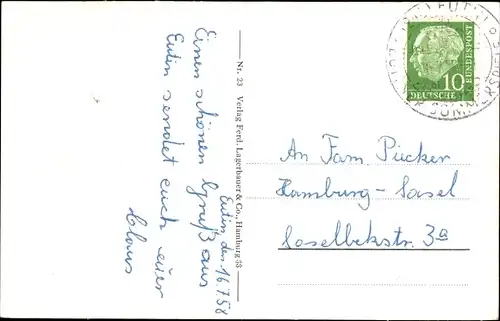 Eutin, den 16.7.58
Einen schönen Gruß aus
Eutin sendet euch euer
Claus
Nr. 23 Verlag Ferd. Lagerbauer & Co., Hamburg 33
EUTIN
10
DEUTSCHE BUNDESPOST
An Fam. Pücker
Hamburg-Sasel
Saselbekstr. 3a